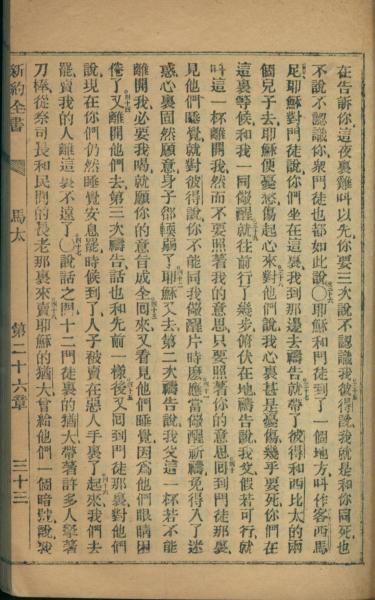 在告訴你這夜裏雞叫以先你要三次說不認識我彼得說我就是和你同死也
不說不認識你衆門徒也都如此說〇耶穌和門徒到了一個地方叫作客西馬
尼耶穌對門徒說你們坐在這裏我到那邊去禱告就帶了彼得和西比太的兩
個兒子去耶穌便憂愁傷起心來對他們說我心裏甚是憂傷幾乎要死你們在
這裏等候和我一同儆醒就往前行了幾步俯伏在地禱告說我父假若可行就
叫這一杯離開我然而不要照著我的意思只要照著你的意思回到門徒那裏
見他們睡覺就對彼得說你不能同我儆醒片時麼應當儆醒祈禱免得入了迷
惑心裏固然願意身子卻輭弱了耶穌又去第二次禱告說我父這一杯若不能
離開我必要我喝就願你的意旨成全回來又看見他們睡覺因爲他們眼睛困
倦了又離開他們去第三次禱告話也和先前一樣後又回到門徒那裏對他們
說現在你們仍然睡覺安息罷時候到了人子被賣在惡人手裏了起來我們去
罷賣我的人離這裏不遠了〇說話之間十二門徒裏的猶大帶著許多人拏著
刀棒從祭司長和民間的長老那裏來賣耶穌的猶大曾給他們一個暗號說我
新約全書 馬太 第二十六章 三十三